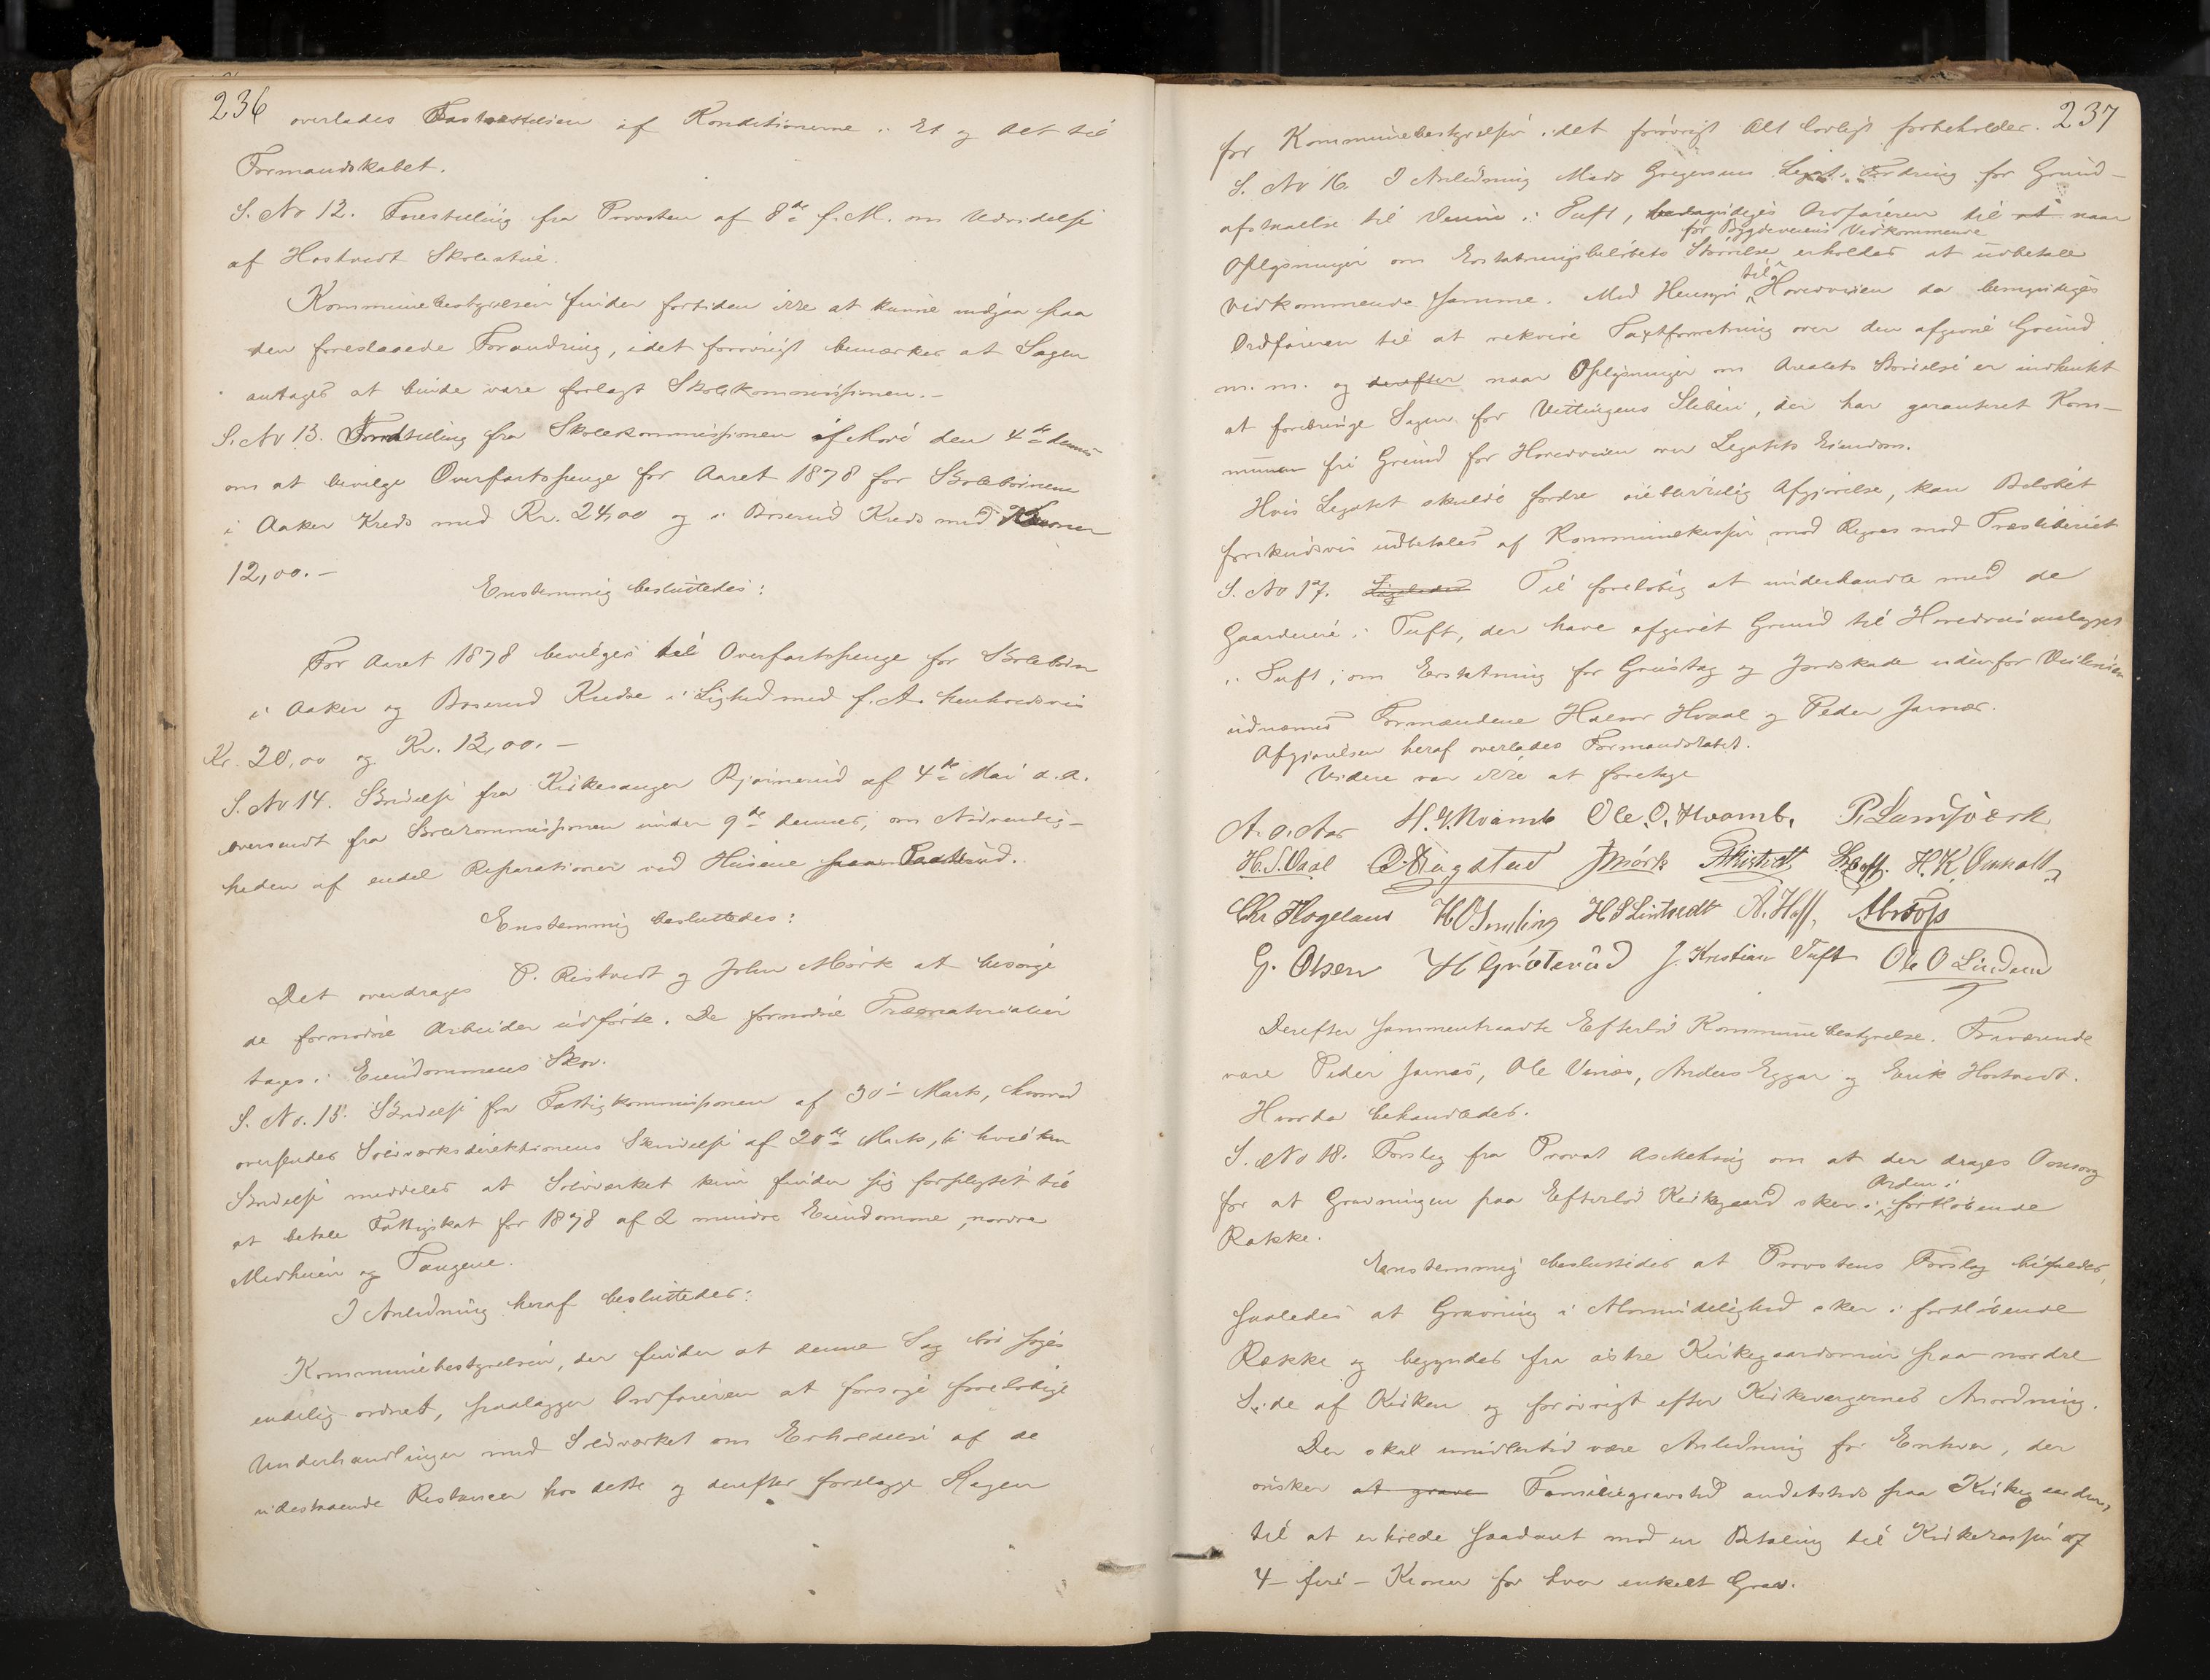 236
overlades Fastsættelsen af Konditionerne i Et og Alt til
Formandskabet.
S. No 12. Forestilling fra Provsten af 8de f. M. om Udvidelse
af Hostvedt Skolestue.
Kommunebestyrelsen finder fortiden ikke at kunne indgaa paa
den foreslaaede Forandring, idet forøvrigt bemærkes at Sagen
antages at burde være forlagt Skolekommissionen. -
S. No 13. Forestilling fra Skolekommissionen af den 4de dennes
om at bevilge Overfartspenge for Aaret 1878 for Skolebørnene
i Aaker Kreds med Kr. 24,00 og i Boserud Kreds med Kroner
12,00. -
Enstemmig besluttedes:
For Aaret 1878 bevilges til Overfartspenge for Skolebørn
i Aaker og Boserud Kredse i Lighed med f. A. henholdsvis
Kr. 20,00 og Kr. 12,00. -
S. No 14. Skrivelse fra Kirkesanger Bjørnerud af 4de Mai d. A.
oversendt fra Skolekommissionen under 9de dennes, om Nødvendig-
heden af endel Reparationer ved Husene paa
Enstemmig besluttedes:
Det overdrages P. Ristvedt og John Mørk at besørge
de fornødne Arbeider udførte. De fornødne Træmaterialier
tages i Eiendommens Skov.
S. No. 15. Skrivelse fra Fattigkommissionen af 30- Marts, hvorved
oversendes Sølvværksdirektionens Skrivelse af 20de Marts, i hvilken
Skrivelse meddeles at Sølvværket kun finder sig forpligtet til
at betale Fattigskat for 1878 af 2 mindre Eiendomme, nordre
Medheien og Tangene.
I Anledning heraf besluttedes:
Kommunebestyrelsen, der finder at denne Sag bør søges
endelig ordnet, paalægger Ordføreren at forsøge foreløbige
Underhandlinger med Sølvværket om Erholdelse af de
udestaaende Restancer hos dette og derefter forelægge Sagen
237
for Kommunebestyrelsen idet forøvrigt Alt lovligt forbeholdes.
S. No 16. I Anledning Mads Gregersens Legat. Fordring for Grund-
afstaaelse til Veiene i Tuft, bemyndiges Ordføreren til at naar
for Bygdeveiens Vedkommende
Oplysninger om Erstatningsbeløbets Størrelse erholdes at udbetale
Vedkommende samme. Med Hensyn til Hovedveien da bemyndiges
Ordføreren til at rekvirere Taxtforretning over den afgivne Grund
m. m. og derefter naar Oplysninger om Arealets Størrelse er indhentet
at forebringe Sagen for Vittingens Sliberi, der har garanteret Kom-
munen fri Grund for Hovedveien over Legatets Eiendom.
Hvis Legatet skulde fordre øieblikkelig Afgjørelse, kan Beløbet
forskudsvis udbetales af Kommunekassen mod Regres mod Træsliberiet
S. No 17. Ligeledes Til foreløbig at underhandle med de
Gaardeiere i Tuft, der have afgivet Grund til Hovedveianlægget
i Tuft, om Erstatning for Grustag og Jordskade udenfor Veilinien
udnævnes Formændene Halvor Hvaal og Peder Jarnæs.
Afgjørelsen heraf overlades Formandskabet.
Videre var ikke at foretage
A. O. Aas H. G. Kvamb Ole O. Hvamb. P. Landsværk
H. S. Vaal O. Haugstad J Mørk H. K.
Chr Hogeland H. S. Lintvedt A. Hoff.
G. Olsen H Grøterud J. Kristian Tuft Ole O Linderud
Derefter sammentraadte Efteløt Kommunebestyrelse. Fraværende
vare Peder Jarnæs, Ole Vinæs, Anders Eggar og Erik Hostvedt.
Hvorda behandledes.
S. No 18. Forslag fra Provst Aschehoug om at der drages Omsorg
for at Gravningen paa Efteløt Kirkegaard sker i Orden i fortløbende
Række.
Enstemmig besluttedes at Provstens Forslag bifaldes,
saaledes at Gravning i Almindelighed sker i fortløbende
Række og begyndes fra østre Kirkegaardsmur paa nordre
Side af Kirken og forøvrigt efter Kirkevergernes Anordning.
Der skal imidlertid være Anledning for Enhver, der
ønsker at grave Familiegravsted andetsteds paa Kirkegaarden,
til at erholde saadant mod en Betaling til Kirkekassen af
4 - fire - Kroner for hver enkelt Grav.